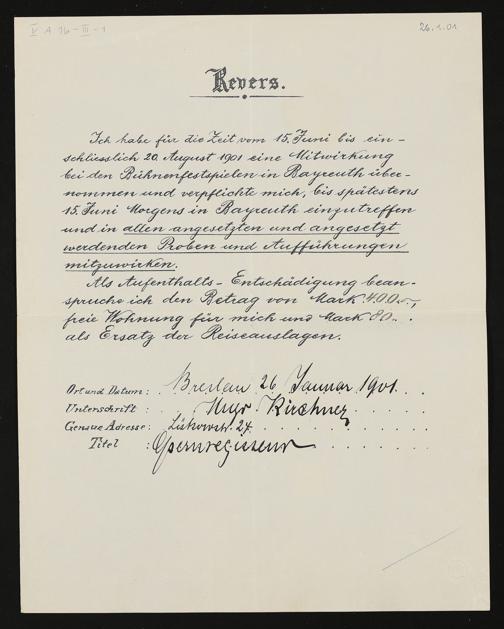 V A 16-III-1
26.1.01
Revers.
Ich habe für die Zeit vom 15. Juni bis ein-
schliesslich 20. August 1901 eine Mitwirkung
bei den Bühnenfestspielen in Bayreuth über-
nommen und verpflichte mich, bis spätestens
15. Juni Morgens in Bayreuth einzutreffen
und in allen angesetzten und angesetzt
werdenden Proben und Aufführungen
mitzuwirken.
Als Aufenthalts-Entschädigung bean-
spruche ich den Betrag von Mark 400.-,
freie Wohnung für mich und Mark 80..
als Ersatz der Reiseauslagen.
Ort und Datum: Breslau 26 Januar 1901.
Unterschrift: Hugo Kirchner
Genaue Adresse: 24.
Titel: Opernregisseur